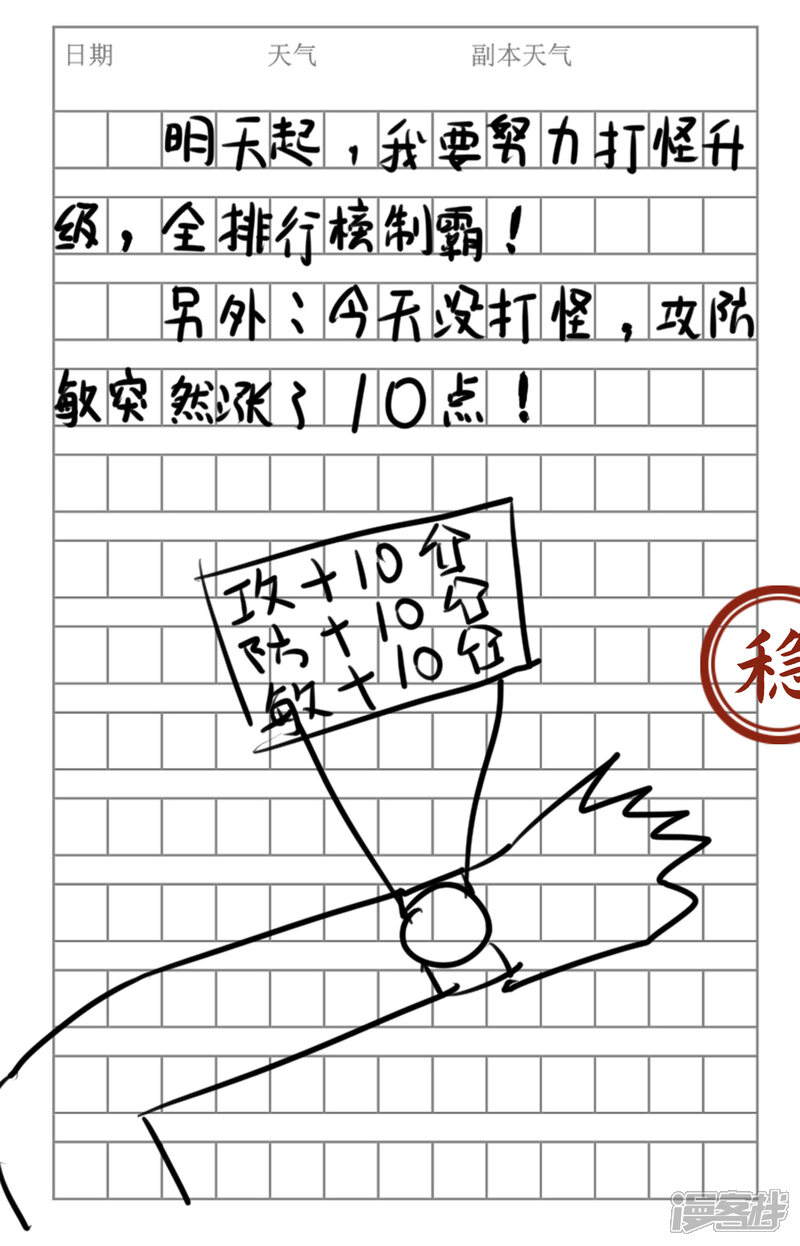 日期 天气 副本天气
明天起，我要努力打怪升
级，全排行榜制霸！
另外：今天没打怪，攻防
敏突然涨了10点！
攻+10个
防+10个
敏+10个
稳
漫客栈